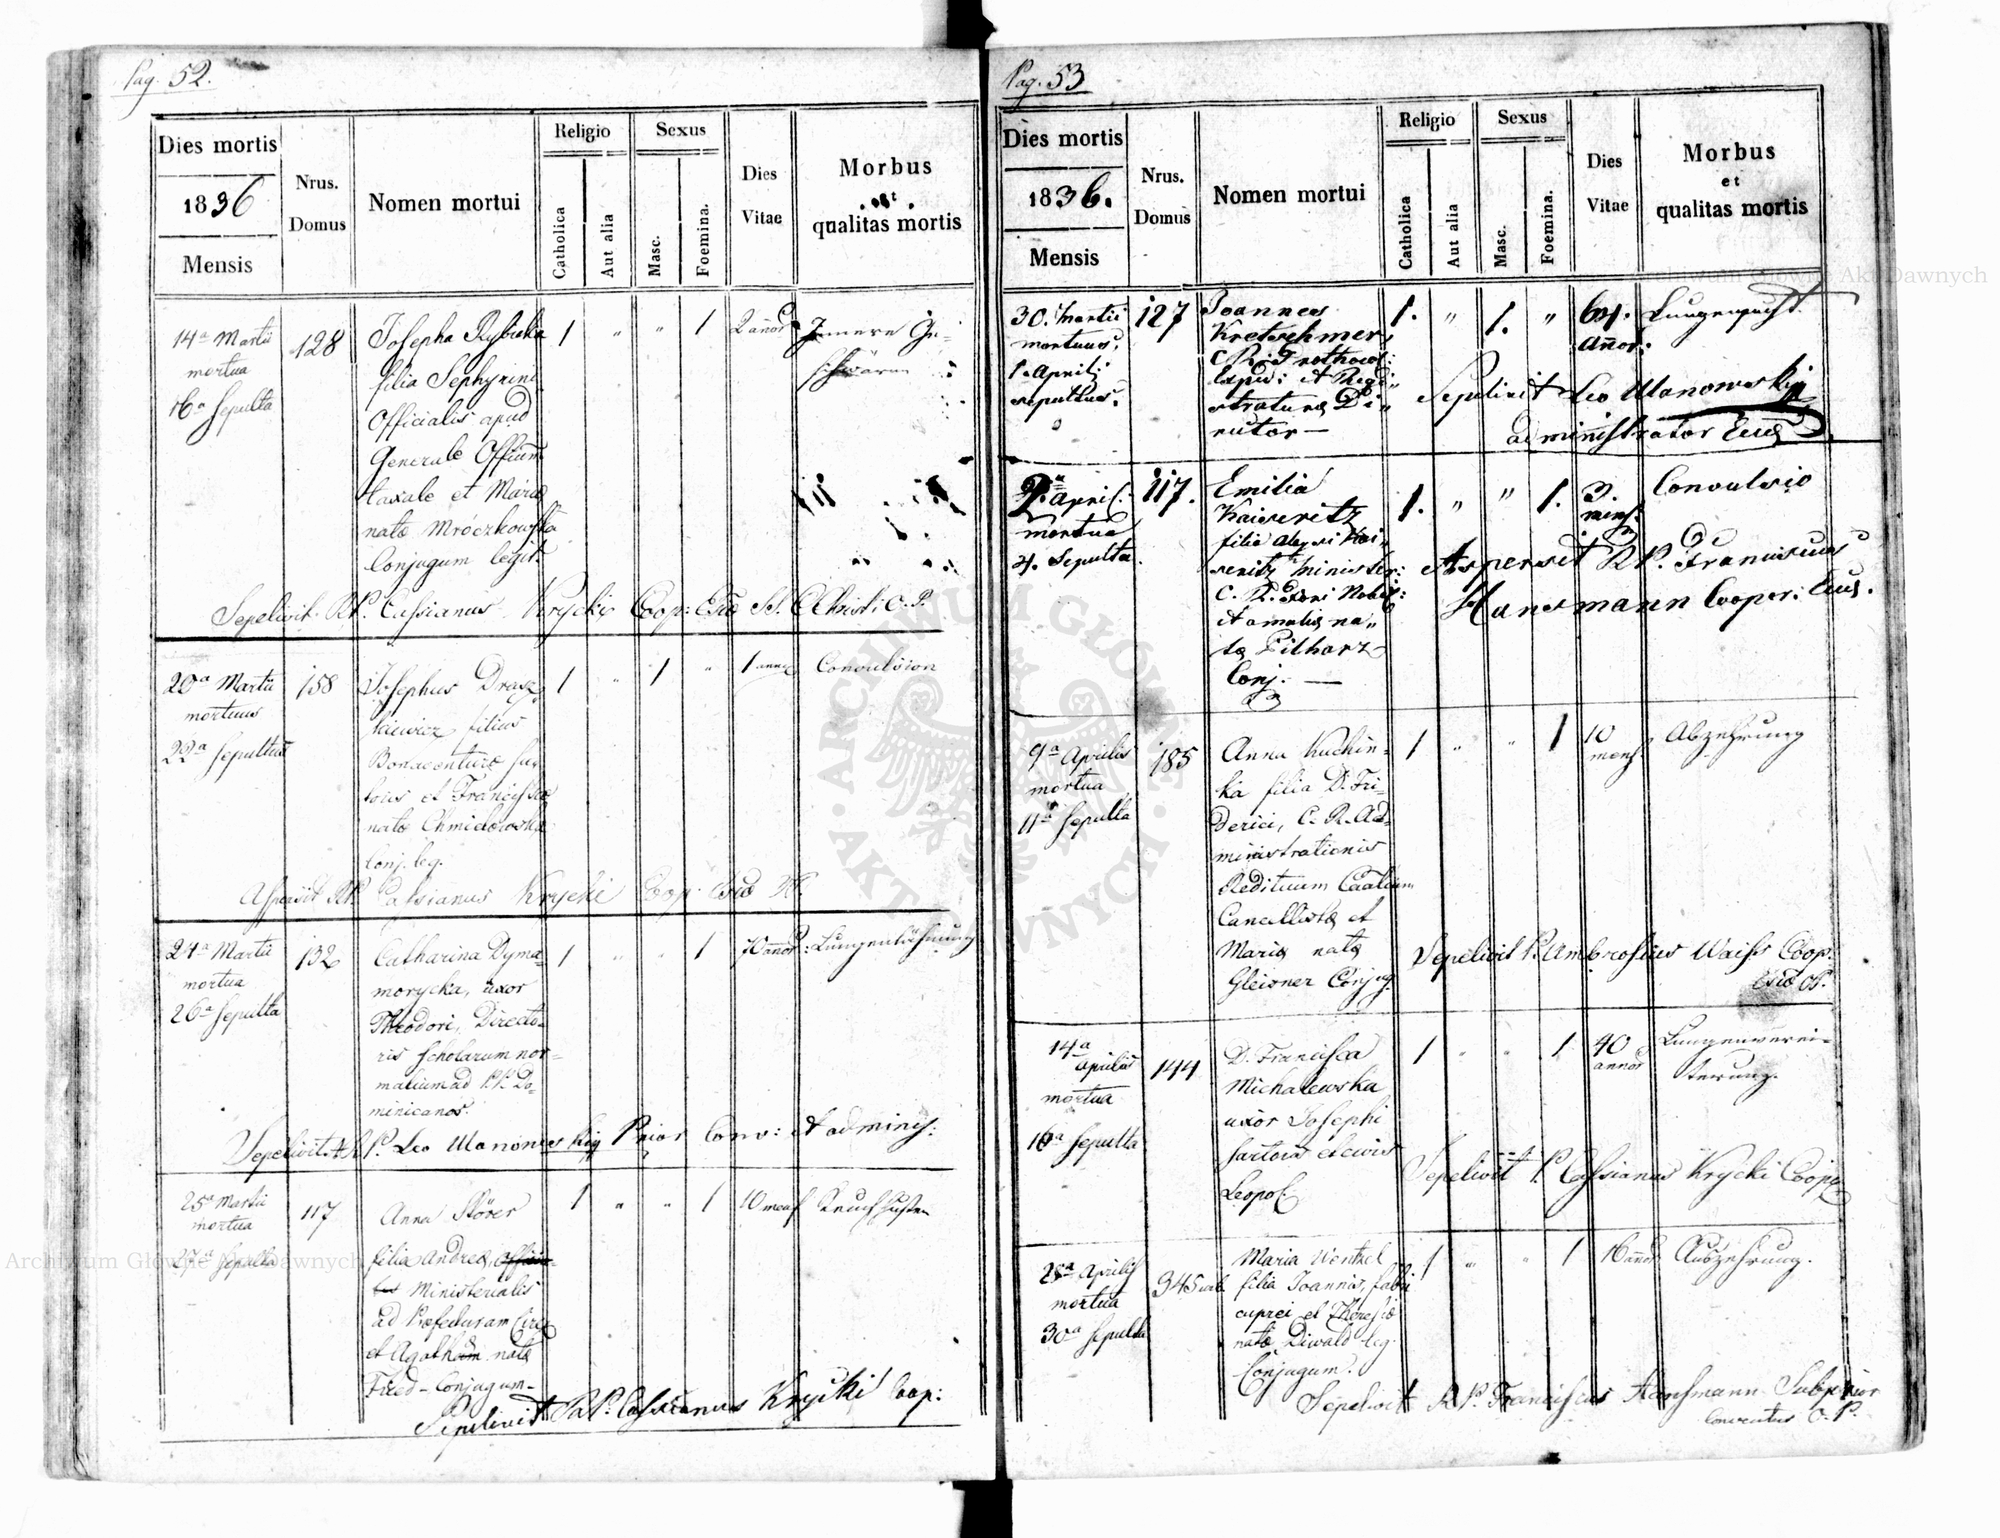 Pag. 52.
Dies mortis
1836
Mensis
Nrus.
Domus
Nomen mortui
Religio
Catholica
Aut alia
Sexus
Masc.
Foemina.
Dies
Vitae
Morbus
et
qualitas mortis
14a Martii
mortua
16a Sepulta
128
Josepha Rybicka
filia Sephyrini
Officialis apud
Generale Officium
taxale et Maria
nata Mróczkowska
Conjugum legit.
1 " " 1
2 annor
Innere Ge-
schwüren
Sepelivit RP. Cassianus Krycki Coop:
20a Martii
mortuus
22a Sepultus
158
Josephus Drasz
kiewicz filius
Bonaventurae Su
toris et Francisca
nata Chmielowska
Conj. leg.
1 " 1 "
1 anni
Convulsion
Aspersit RP. Cassianus Krycki Coop
24a Martii
mortua
26a Sepulta
132
Catharina Dyma-
morycka, uxor
Theodori, Directo-
ris Scholarum nor-
malium ad P.P. Do-
minicanos.
1 " " 1
70 annor:
Lungenlähmung
Sepelivit P. Leo Manonowskij Prior Conv: et adminis:
25a Martii
mortua
27a Sepulta
117
Anna Stöver
filia Andrea
Ministerialis
ad Praefecturam Circ
et Agatha nata
Fred - Conjugum -
1 " " 1
10 mens
Keuchhusten
Sepelivit R.P. Cassianus Krycki Coop:
Pag. 53
Dies mortis
1836.
Mensis
Nrus.
Domus
Nomen mortui
Religio
Catholica
Aut alia
Sexus
Masc.
Foemina.
Dies
Vitae
Morbus
et
qualitas mortis
30. Martii
mortuus,
1. April:
sepultus.
127
Joannes
Kretschmer,
C. R. Prothocol:
Exped: et Regi"
straturae Di"
rector —
1. " 1. "
64.
annor:
Lungensucht.
Sepelivit Leo Manonowskij
administrator Eccl
2a April.
mortua
4. Sepulta.
117.
Emilia
Kaiseritz
filia Aloysi Kai"
seritz Minister:
C. R. Fori Nobil:
et Amalia na"
ta Pitharz
Conj. —
1. " " 1.
3.
mens.
Convulsio
Aspersit RP. Franciscus
Hansmann Cooper: Eccl.
9a Aprilis
mortua
11a Sepulta
185
Anna Kuchin-
ka filia D. Fri-
derici, C. R. Ad-
ministrationis
Redituum Caalium
Cancellista et
Maria nata
Gleisner Conjug.
1 " " 1
10
mens.
Abzehrung
Sepelivit P. Ambrosius Waiss Coop:
14a
Aprilis
mortua
16a Sepulta
144
D. Francisca
Michalewska
uxor Josephi
Sartoris et civis
Leopol.
1 " " 1
40
annos
Lungenverei-
terung.
Sepelivit P. Cassianus Krycki Coop
28a Aprilis
mortua
30a Sepulta
345
Maria Wentzel
filia Joannis, fabri
cuprei et Theresia
nata Diwald leg
Conjugum.
1 " " 1
16 annor
Auszehrung.
Sepelivit R.P. Franciscus Hansmann Subprior
Conventus O. P.
ARCHIWUM GŁÓWNE AKT DAWNYCH
Archiwum Główne Akt Dawnych
Archiwum Główne Akt Dawnych